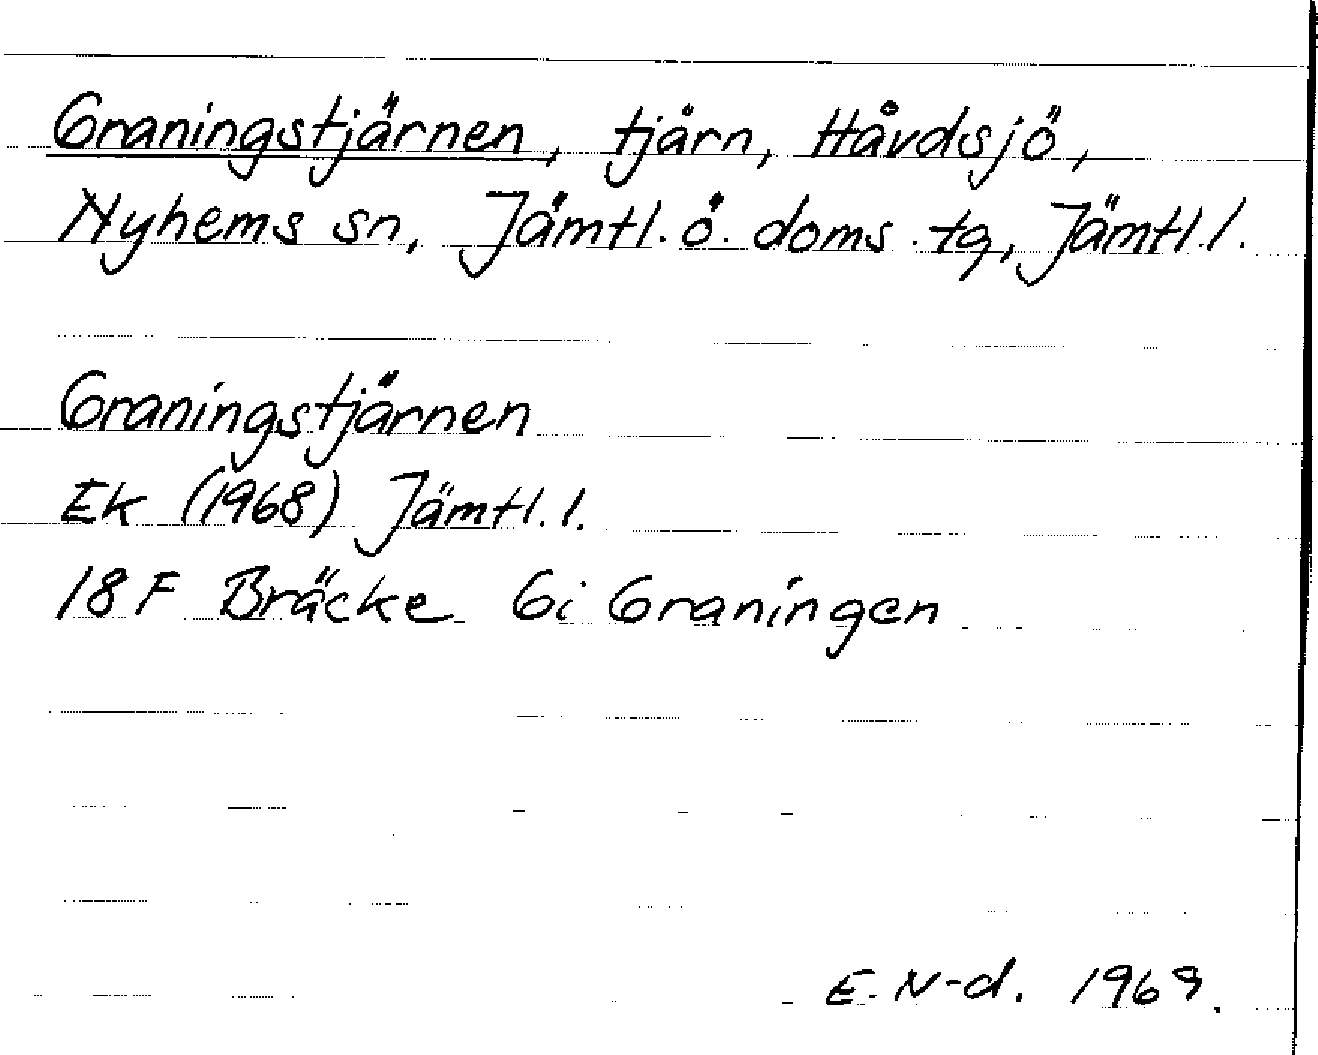 Graningstjärnen, tjärn, Håvdsjö,
Nyhems sn, Jämtl. ö. doms. tg, Jämtl. l.
Graningstjärnen
Ek (1968) Jämtl. l.
18 F Bräcke 6i Graningen
E. N-d. 1969.